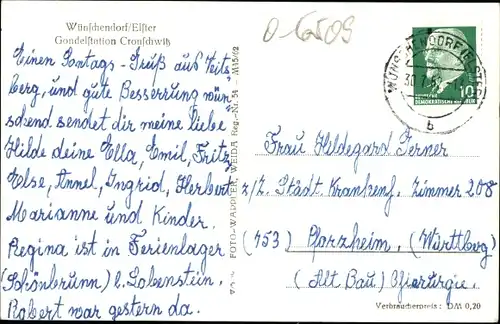 Wünschendorf/Elster
Gondelstation Cronschwitz
O-6509
Einen Sontags-Gruß aus Veits-
berg, und gute Besserrung wün-
schend sendet dir meine liebe
Hilde deine Ella, Emil, Fritz,
Else, Annel, Ingrid, Herbert
Marianne und Kinder.
Regina ist in Ferienlager
(Schönbrunn) b. Lobenstein.
Robert war gestern da.
FOTO-WADDLER, WEIDA Reg.-Nr. 54 A 115/62
WÜNSCHENDORF (ELSTER)
b
DEUTSCHE
DEMOKRATISCHE REPUBLIK
10
Frau Hildegard Ferner
z/z. Städt. Krankenh. Zimmer 208
(753) Pforzheim, (Württberg)
(Alt Bau) Chierurgie.
Verbraucherpreis: DM 0,20